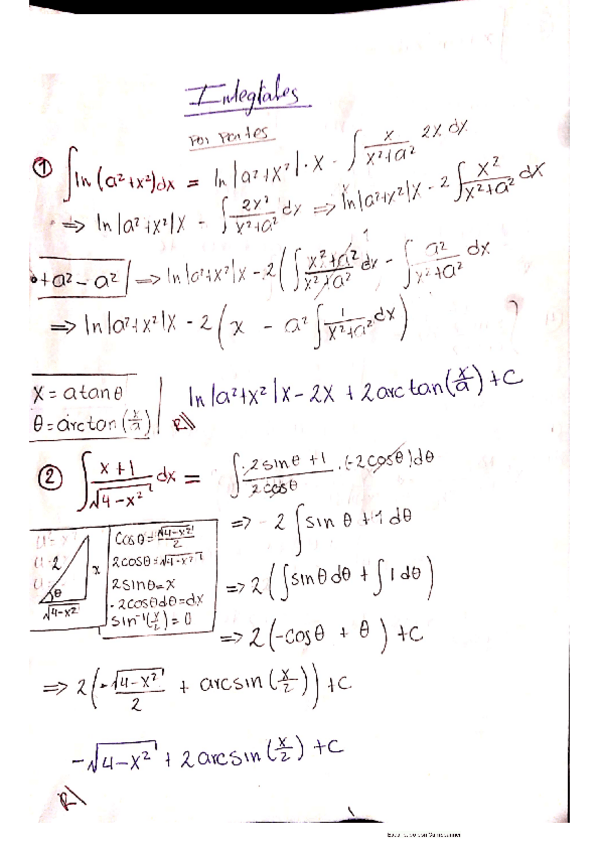 Integrales
Por partes
① ∫ ln(a²+x²)dx = ln|a²+x²|·x - ∫ x/(x²+a²) 2x dx
⇒ ln|a²+x²|x - ∫ 2x²/(x²+a²) dx ⇒ ln|a²+x²|x - 2∫ x²/(x²+a²) dx
+a² - a² | ⇒ ln|a²+x²|x - 2(∫ (x²+a²)/(x²+a²) dx - ∫ a²/(x²+a²) dx
⇒ ln|a²+x²|x - 2(x - a² ∫ 1/(x²+a²) dx)
x = a tanθ
θ = arctan(x/a)
ln|a²+x²|x - 2x + 2 arctan(x/a) + C
R//
② ∫ (x+1)/√(4-x²) dx = ∫ (2sinθ+1)/(2cosθ) · (-2cosθ)dθ
2
x
θ
√(4-x²)
Cosθ = √(4-x²)/2
2cosθ = √(4-x²)
2sinθ = x
-2cosθdθ = dx
sin⁻¹(x/2) = θ
⇒ 2∫ sinθ + 1 dθ
⇒ 2(∫ sinθdθ + ∫ 1dθ)
⇒ 2(-cosθ + θ) + C
⇒ 2(-√(4-x²)/2 + arcsin(x/2)) + C
-√(4-x²) + 2 arcsin(x/2) + C
R//